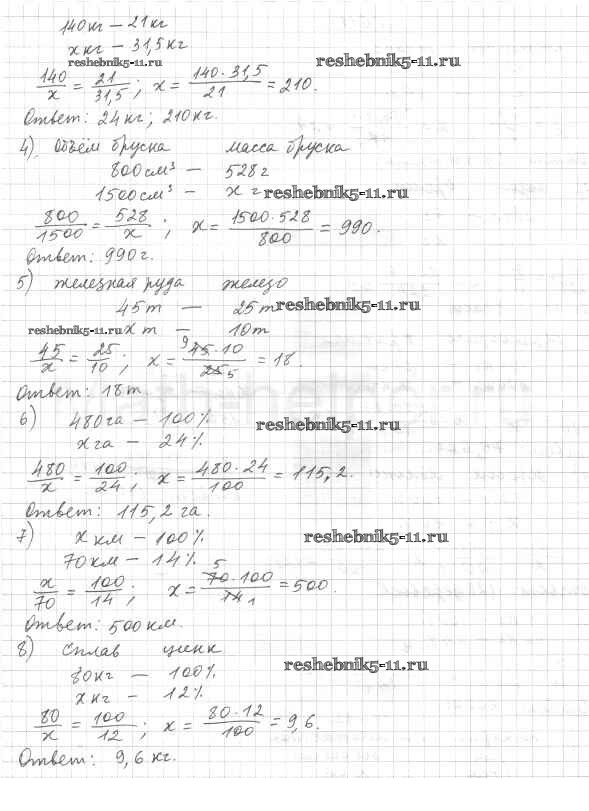 140 кг — 21 кг
x кг — 31,5 кг
reshebnik5-11.ru reshebnik5-11.ru
140/x = 21/31,5; x = 140·31,5/21 = 210.
Ответ: 24 кг; 210 кг.
4) Объём бруска масса бруска
800 см³ — 528 г
1500 см³ — x г reshebnik5-11.ru
800/1500 = 528/x; x = 1500·528/800 = 990.
Ответ: 990 г.
5) железная руда железо
45 т — 25 т reshebnik5-11.ru
reshebnik5-11.ru x т — 10 т
45/x = 25/10; x = 9 45·10/25 5 = 18.
Ответ: 18 т
6) 480 га — 100% reshebnik5-11.ru
x га — 24%
480/x = 100/24; x = 480·24/100 = 115,2.
Ответ: 115,2 га.
7) x км — 100% reshebnik5-11.ru
70 км — 14%
x/70 = 100/14; x = 5 70·100/14 1 = 500.
Ответ: 500 км.
8) Сплав цинк
80 кг — 100% reshebnik5-11.ru
x кг — 12%
80/x = 100/12; x = 80·12/100 = 9,6.
Ответ: 9,6 кг.